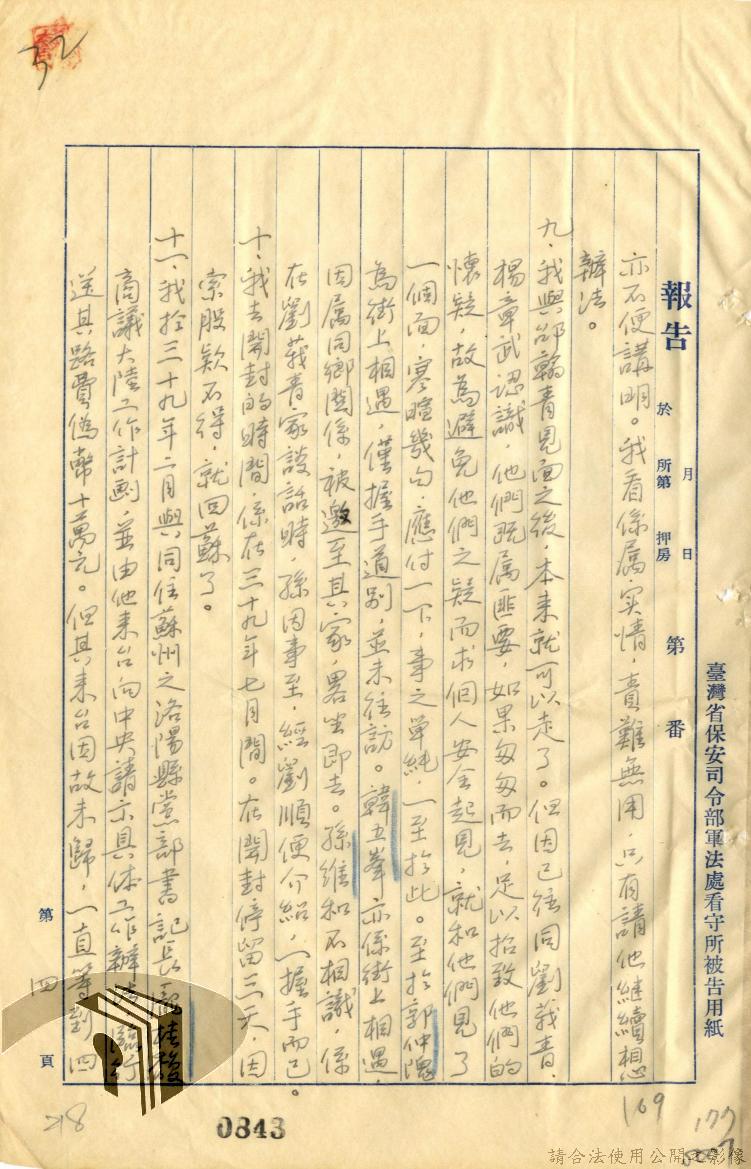 32
臺灣省保安司令部軍法處看守所被告用紙
報告 於 月 日 所第 押房 第 番
亦不便講明。我看係属实情,責難無用,只有請他継續想
辦法。
九、我與邰翰青見面之後,本来就可以走了。但因已経同劉莪青、
楊章武認識,他們既属匪要,如果匆匆而去,足以招致他們的
懷疑,故為避免他們之疑而求個人安全起見,就和他們見了
一個面,寒暄幾句,應付一下,事之单純,一至於此。至於郭仲隗
為街上相遇,僅握手道别,並未往訪。韓五峯亦係街上相遇,
因属同鄉関係,被邀至其家,畧坐即去。孫維和不相識,係
在劉莪青家談話時,孫因事至,経劉順便介紹,一握手而已。
十、我去開封的時間,係在三十九年七月間。在開封停留三天,因
索股欵不得,就回蘇了。
十一、我於三十九年二月與同住蘇州之洛陽縣党部書記長桂駿
商議大陸工作計劃,並由他来台向中央請示具体工作辦法,臨行
送其路費偽幣十萬元。但其来台因故未歸,一直等到四
第四頁
0843
169
177
請合法使用公開之影像